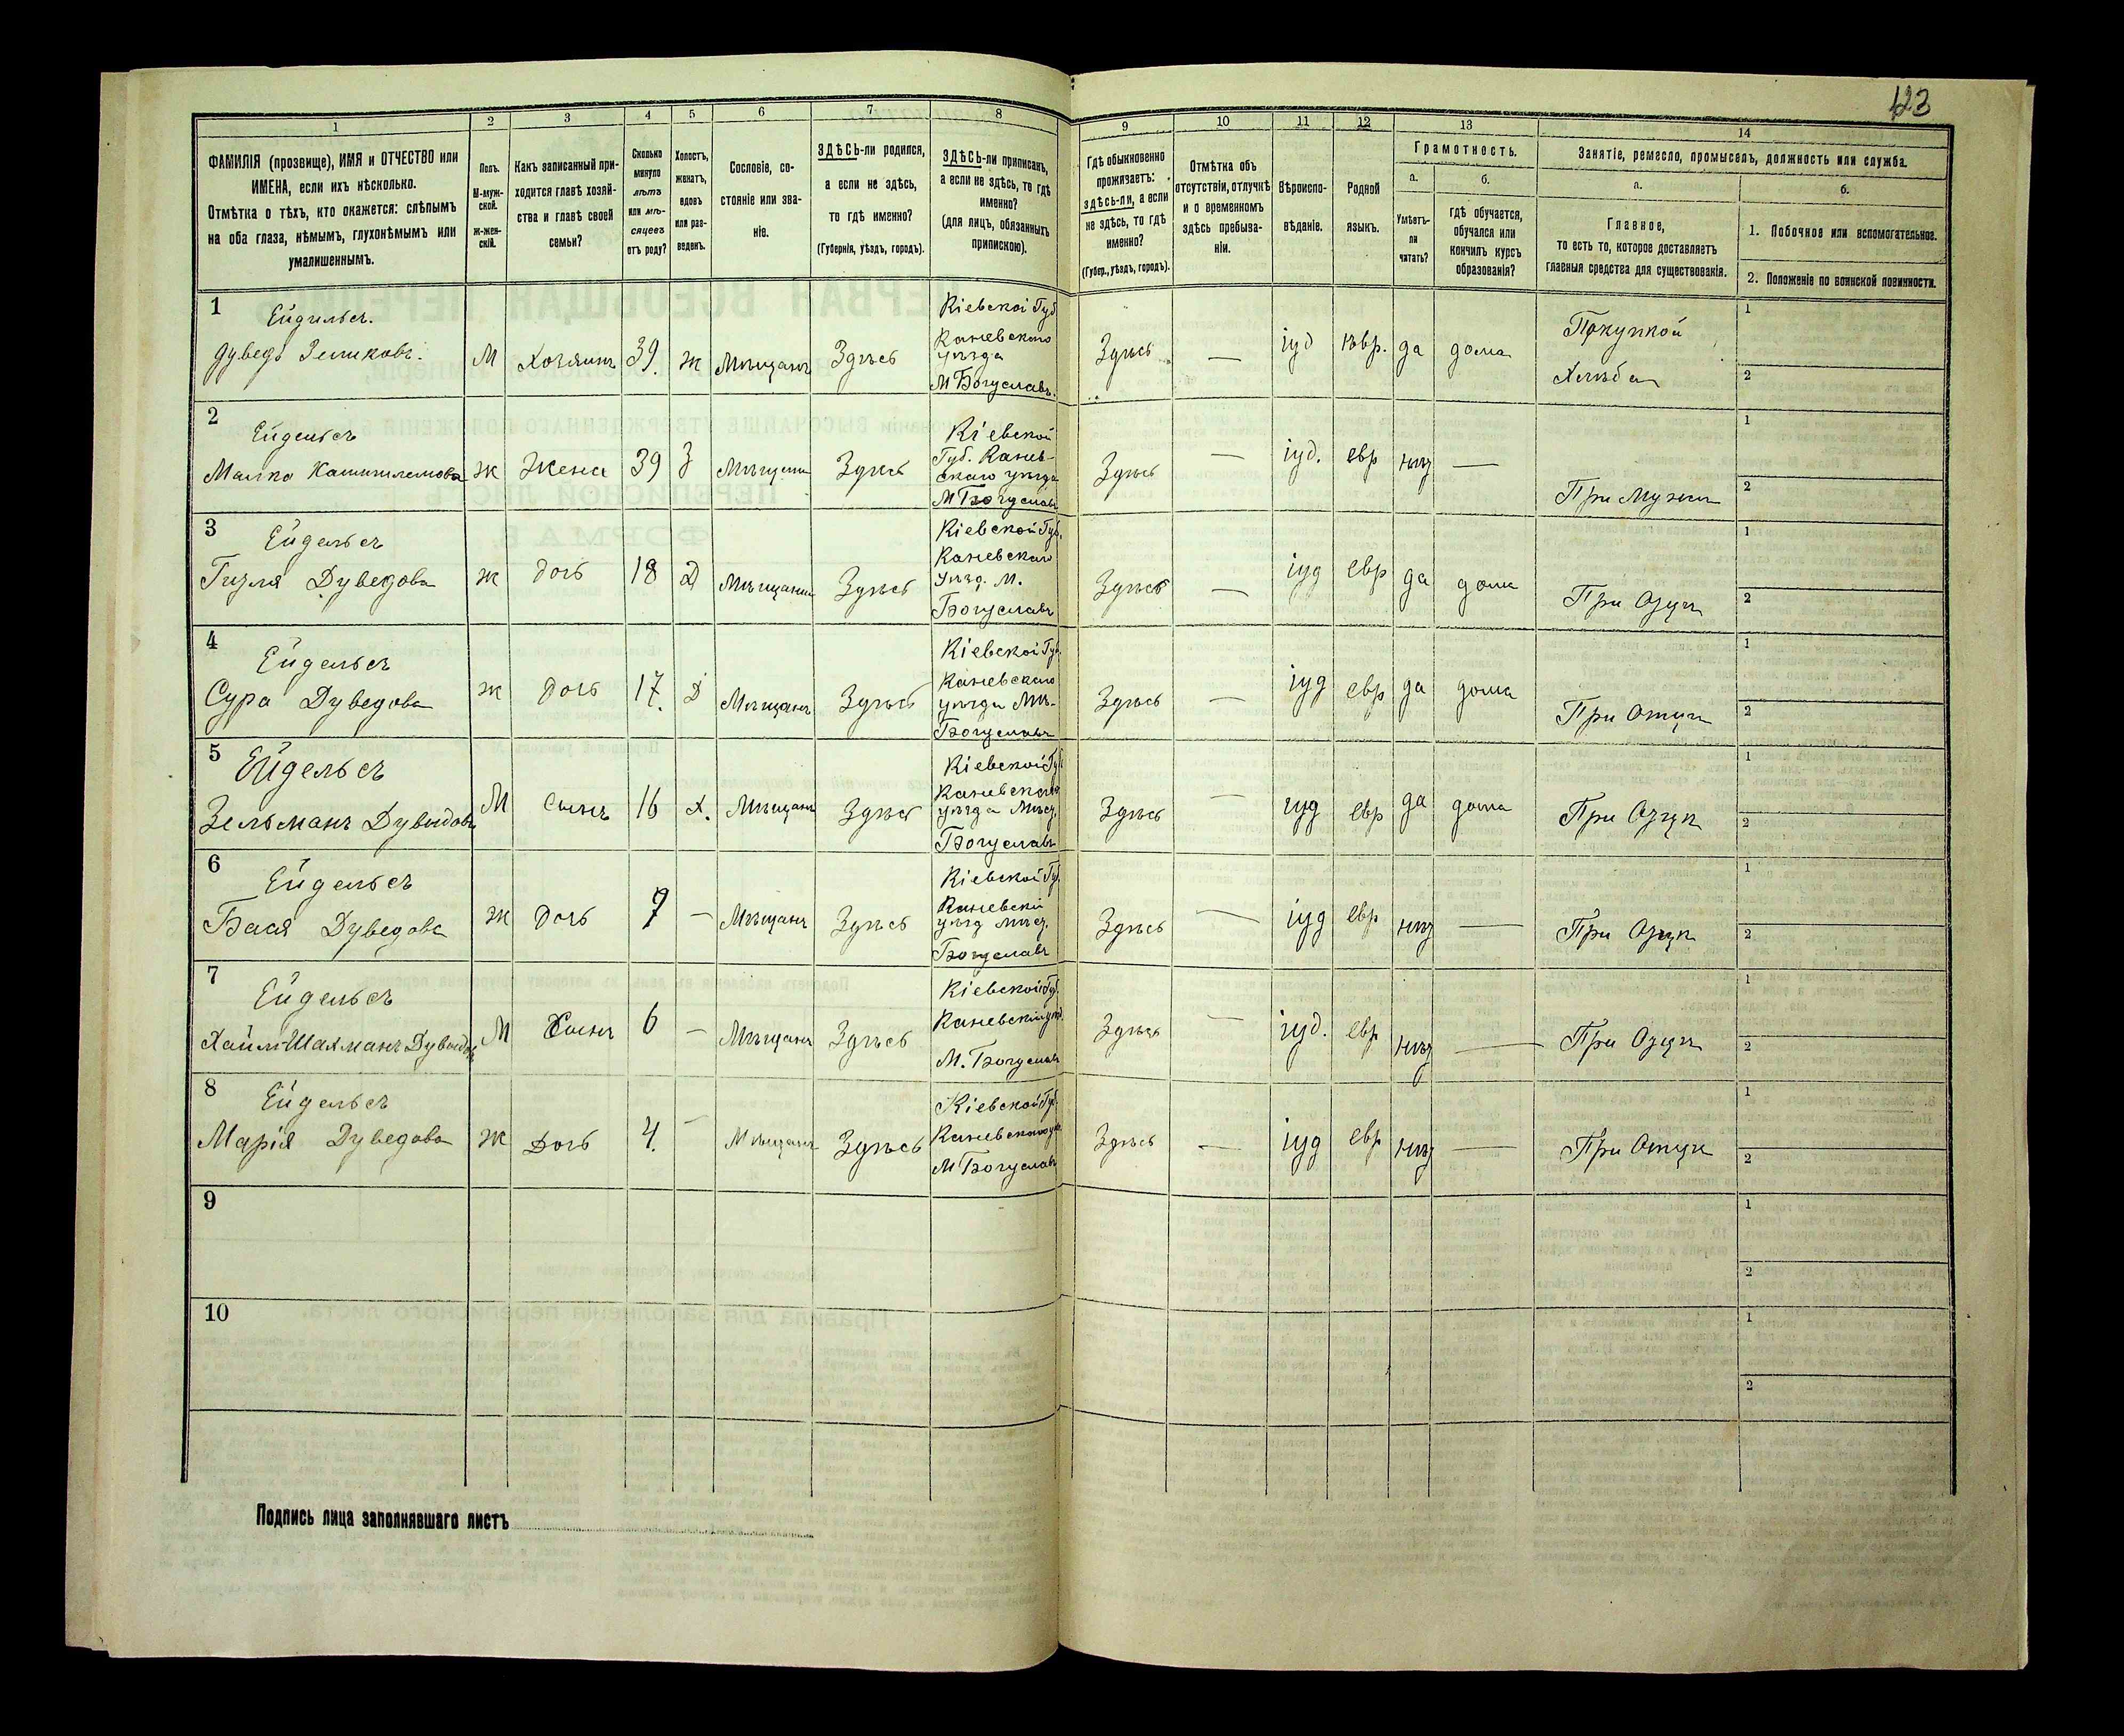 123
1 2 3 4 5 6 7 8 9 10 11 12 13 14
ФАМИЛІЯ (прозвище), ИМЯ и ОТЧЕСТВО или
ИМЕНА, если ихъ нѣсколько.
Отмѣтка о тѣхъ, кто окажется: слѣпымъ
на оба глаза, нѣмымъ, глухонѣмымъ или
умалишеннымъ.
Полъ.
М-муж-
ской.
ж-жен-
скій.
Какъ записанный при-
ходится главѣ хозяй-
ства и главѣ своей
семьи?
Сколько
минуло
лѣтъ
или мѣ-
сяцевъ
отъ роду?
Холостъ,
женатъ,
вдовъ
или раз-
веденъ.
Сословіе, со-
стояніе или зва-
ніе.
ЗДѢСЬ-ли родился,
а если не здѣсь,
то гдѣ именно?
(Губернія, уѣздъ, городъ).
ЗДѢСЬ-ли приписанъ,
а если не здѣсь, то гдѣ
именно?
(для лицъ, обязанныхъ
припискою).
Гдѣ обыкновенно
проживаетъ:
здѣсь-ли, а если
не здѣсь, то гдѣ
именно?
(Губер., уѣздъ, городъ).
Отмѣтка объ
отсутствіи, отлучкѣ
и о временномъ
здѣсь пребыва-
ніи.
Вѣроиспо-
вѣданіе.
Родной
языкъ.
Грамотность.
а.
Умѣетъ-
ли
читать?
б.
гдѣ обучается,
обучался или
кончилъ курсъ
образованія?
Занятіе, ремесло, промыселъ, должность или служба.
а.
Главное,
то есть то, которое доставляетъ
главныя средства для существованія.
б.
1. Побочное или вспомогательное.
2. Положеніе по воинской повинности.
1
Ейдильсъ.
Дуведъ Зеликовъ.
М
Хозяинъ
39.
ж
Мѣщанъ
Здѣсь
Кіевской Губ
Каневскаго
уѣзда
М Богуславъ.
Здѣсь
—
іуд
ѣвр.
да
дома
Покупкой
Хлѣба
1
2
2
Ейдельсъ
Малка
ж
Жена
39
З
Здѣсь
Кіевской
Губ. Канев-
скаго уѣзда
М Богуславъ
Здѣсь
—
іуд.
евр
нѣт
—
При Мужѣ
1
2
3
Ейдельсъ
Гизля Дуведова
ж
дочь
18
Д
Здѣсь
Кіевской Губ.
Каневскаго
Уѣзд. М.
Богуславъ
Здѣсь
—
іуд
евр
да
дома
При Отцѣ
1
2
4
Ейдельсъ
Сура Дуведова
ж
Дочь
17.
Д
Мѣщанъ
Здѣсь
Кіевской Губ
Каневскаго
уѣзда Мѣ-
Богуславъ
Здѣсь
—
іуд
евр
да
дома
При Отцѣ
1
2
5
Ейдельсъ
Зельманъ Дувидовъ
М
Сынъ
16
х.
Мѣщанъ
Здѣсь
Кіевской Губ
Каневскаго
уѣзда Мѣс.
Богуславъ
Здѣсь
—
іуд
евр
да
дома
При Отцѣ
1
2
6
Ейдельсъ
Бася Дуведова
ж
Дочь
9
—
Мѣщанъ
Здѣсь
Кіевской Гу.
Каневскій
уѣзд мѣс.
Богуславъ
Здѣсь
—
іуд
евр
нѣт
—
При Отцѣ
1
2
7
Ейдельсъ
Хаим Шахманъ Дувидовъ
М
Сынъ
6
—
Мѣщанъ
Здѣсь
Кіевской Губ.
Каневскій уѣзд
М. Богуславъ
Здѣсь
—
іуд.
евр
нѣт
—
При Отцѣ
1
2
8
Ейдельсъ
Марія Дуведова
ж
Дочь
4.
—
Мѣщанъ
Здѣсь
Кіевской Губ
Каневскаго у.
М Богуславъ
Здѣсь
—
іуд
евр
нѣт
—
При Отцѣ
1
2
9
1
2
10
1
2
Подпись лица заполнявшаго листъ